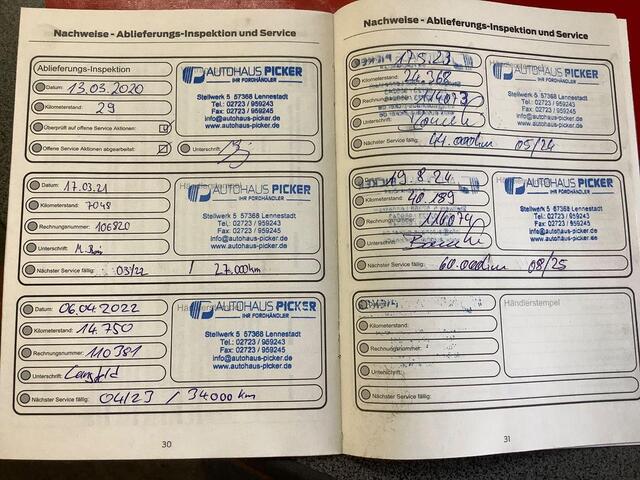 Nachweise - Ablieferungs-Inspektion und Service
Ablieferungs-Inspektion
Datum: 13.03.2020
Kilometerstand: 29
Überprüft auf offene Service Aktionen:
Offene Service Aktionen abgearbeitet:
Unterschrift:
AUTOHAUS PICKER
IHR FORDHÄNDLER
Stellwerk 5 57368 Lennestadt
Tel.: 02723 / 959243
Fax: 02723 / 959245
info@autohaus-picker.de
www.autohaus-picker.de
Datum: 17.03.21
Kilometerstand: 7048
Rechnungsnummer: 106820
Unterschrift:
Nächster Service fällig: 03/22 / 27.000km
AUTOHAUS PICKER
IHR FORDHÄNDLER
Stellwerk 5 57368 Lennestadt
Tel.: 02723 / 959243
Fax: 02723 / 959245
info@autohaus-picker.de
www.autohaus-picker.de
Datum: 06.04.2022
Kilometerstand: 14.750
Rechnungsnummer: 110381
Unterschrift:
Nächster Service fällig: 04/23 / 34000 km
AUTOHAUS PICKER
IHR FORDHÄNDLER
Stellwerk 5 57368 Lennestadt
Tel.: 02723 / 959243
Fax: 02723 / 959245
info@autohaus-picker.de
www.autohaus-picker.de
30
Nachweise - Ablieferungs-Inspektion und Service
17.5.23
Kilometerstand: 24.368
Rechnungsnummer: 114073
Unterschrift:
Nächster Service fällig: 44.000km 05/24
AUTOHAUS PICKER
IHR FORDHÄNDLER
Stellwerk 5 57368 Lennestadt
Tel.: 02723 / 959243
Fax: 02723 / 959245
info@autohaus-picker.de
www.autohaus-picker.de
19.8.24
Kilometerstand: 40.189
Unterschrift:
Nächster Service fällig: 60.000km 08/25
AUTOHAUS PICKER
IHR FORDHÄNDLER
Stellwerk 5 57368 Lennestadt
Tel.: 02723 / 959243
Fax: 02723 / 959245
info@autohaus-picker.de
www.autohaus-picker.de
Kilometerstand:
Rechnungsnummer:
Unterschrift:
Nächster Service fällig:
Händlerstempel
31